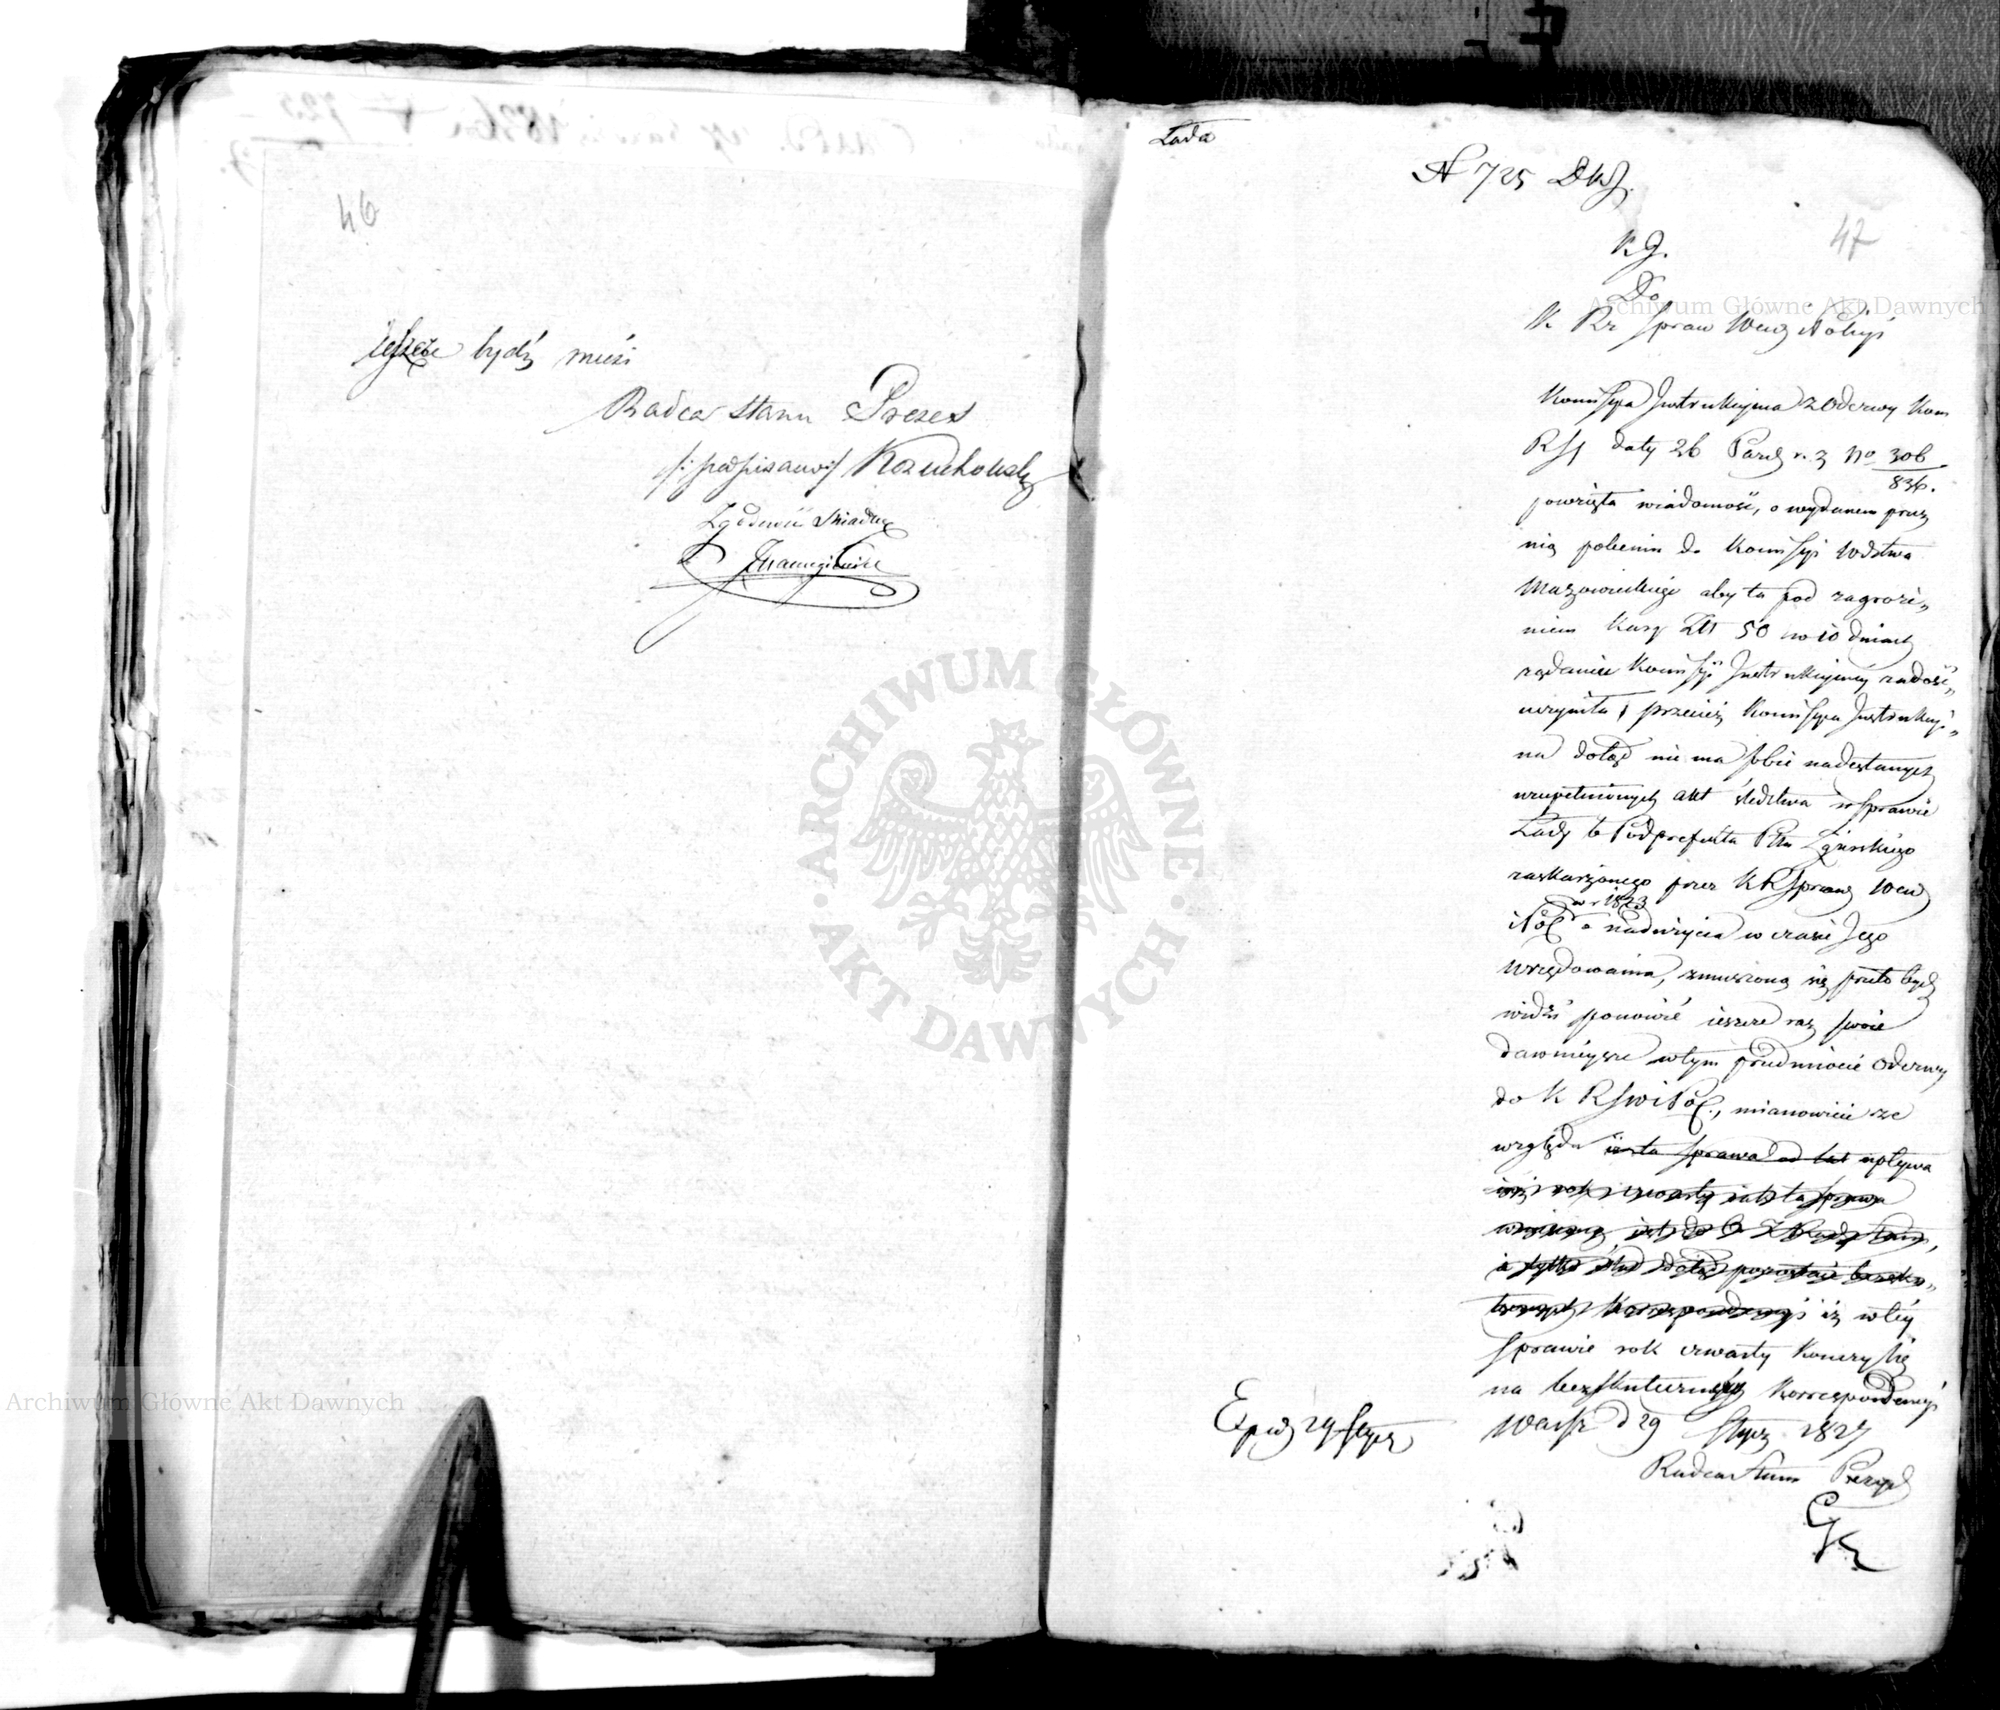 46
jeszcze bydź musi
Radca Stanu Prezes
/: podpisano :/ Kożuchowski
Zgodność świadczę
Łada
N 725 DKJ.
47
K J.
Do
K Rz Spraw Wew i Policyi
Kommissya Instrukcyina z Odezwy Kom
RSS daty 26 Paźdz r. z No 306
836.
powzięła wiadomość, o wydanem przez
nią poleceniu do Kommissyi Wdztwa
Mazowieckiego aby ta pod zagroże„
niem kary Złt 50 w 10 dniach
żądaniu Kommissyi Instrukcyiney zadość„
uczyniła, przecież Kommissya Instrukcyi„
na dotąd nie ma sobie nadesłanych
uzupełnionych akt śledztwa w sprawie
Łady b Podprefekta Ptu Zgierskiego
zaskarżonego przez KRSpraw Wew
w r 1823
i Pol o nadużycia w czasie Jego
urzędowania, zmuszoną się przeto bydź
widzi ponowić ieszcze raz swoie
dawnieysze w tym przedmiocie Odezwy
do K RSWiPol., mianowicie ze
względu iż ta sprawa od lat upływa
iuż rok czwarty iak ta sprawa
dotąd pozostaie bezsku„
tecznych Korrespondencyi iż w téy
sprawie rok czwarty kończy się
na bezskuteczney Korrespondencyi
Warsz d 29 Stycz 1827
Radca Stanu Prezes
GK
Exped 29 Stycz
Archiwum Główne Akt Dawnych
Archiwum Główne Akt Dawnych
ARCHIWUM GŁÓWNE
AKT DAWNYCH